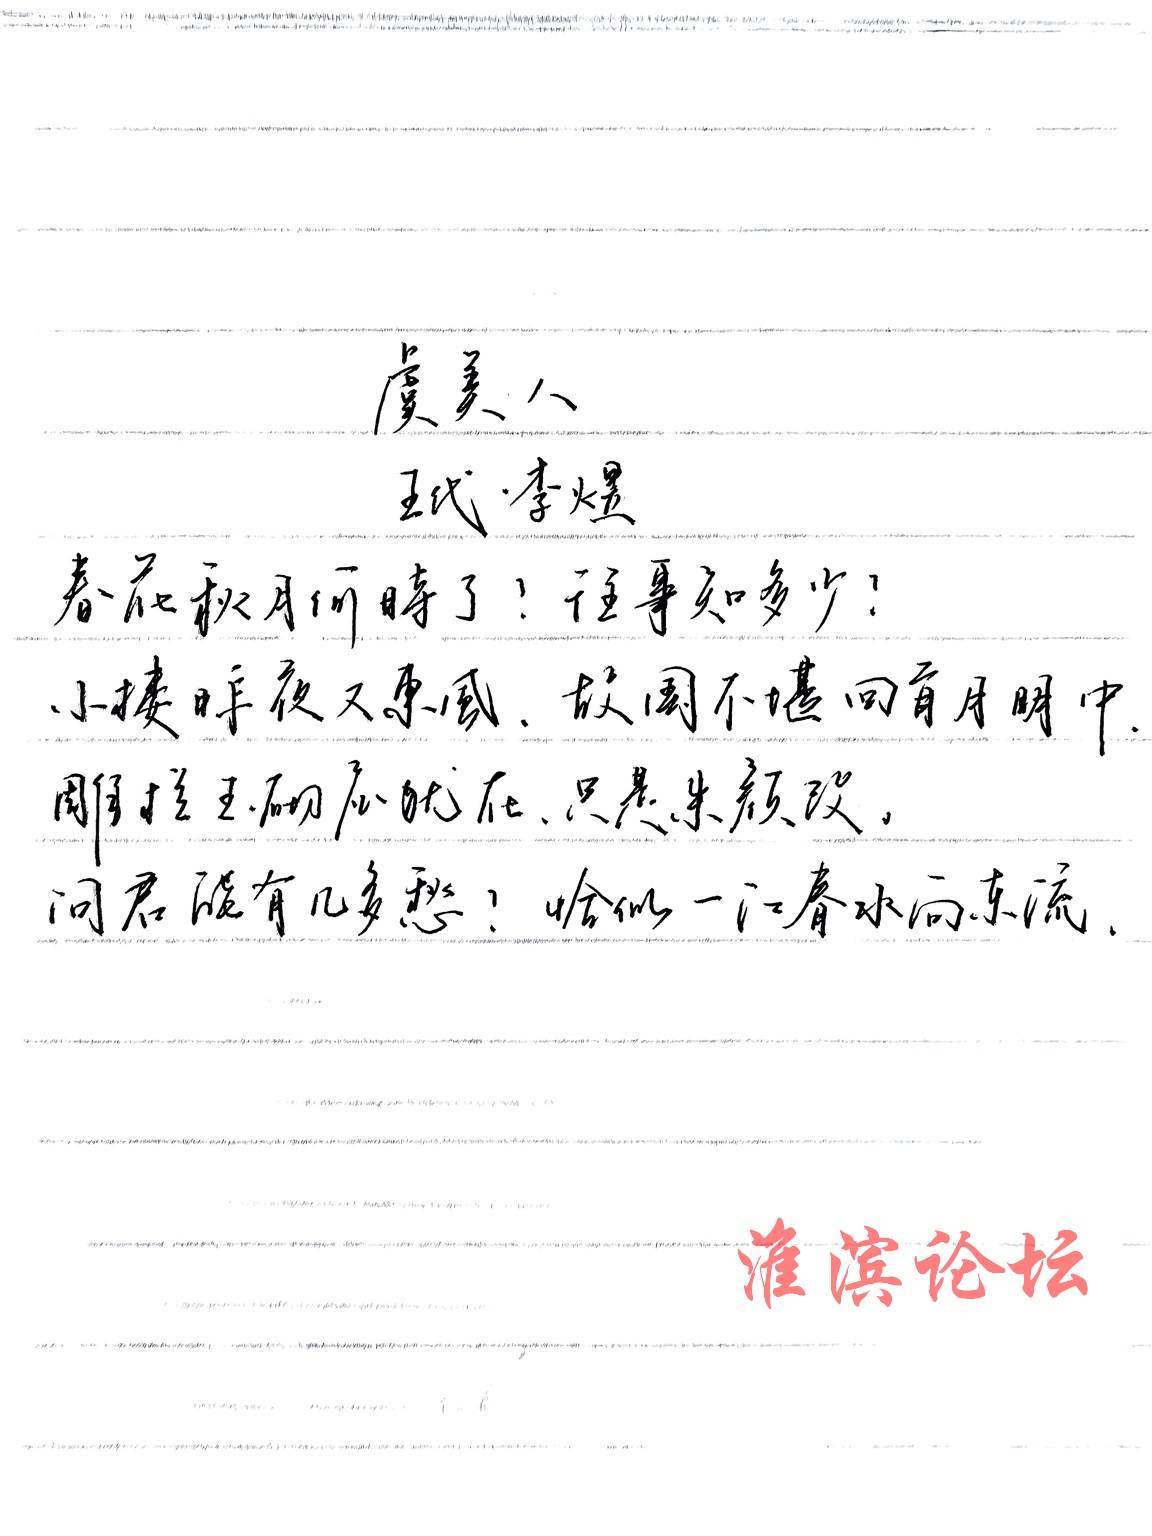 虞美人
五代·李煜
春花秋月何時了？往事知多少？
小楼昨夜又東風、故国不堪回首月明中.
雕栏玉砌应犹在、只是朱颜改。
问君能有几多愁？恰似一江春水向东流.
淮滨论坛